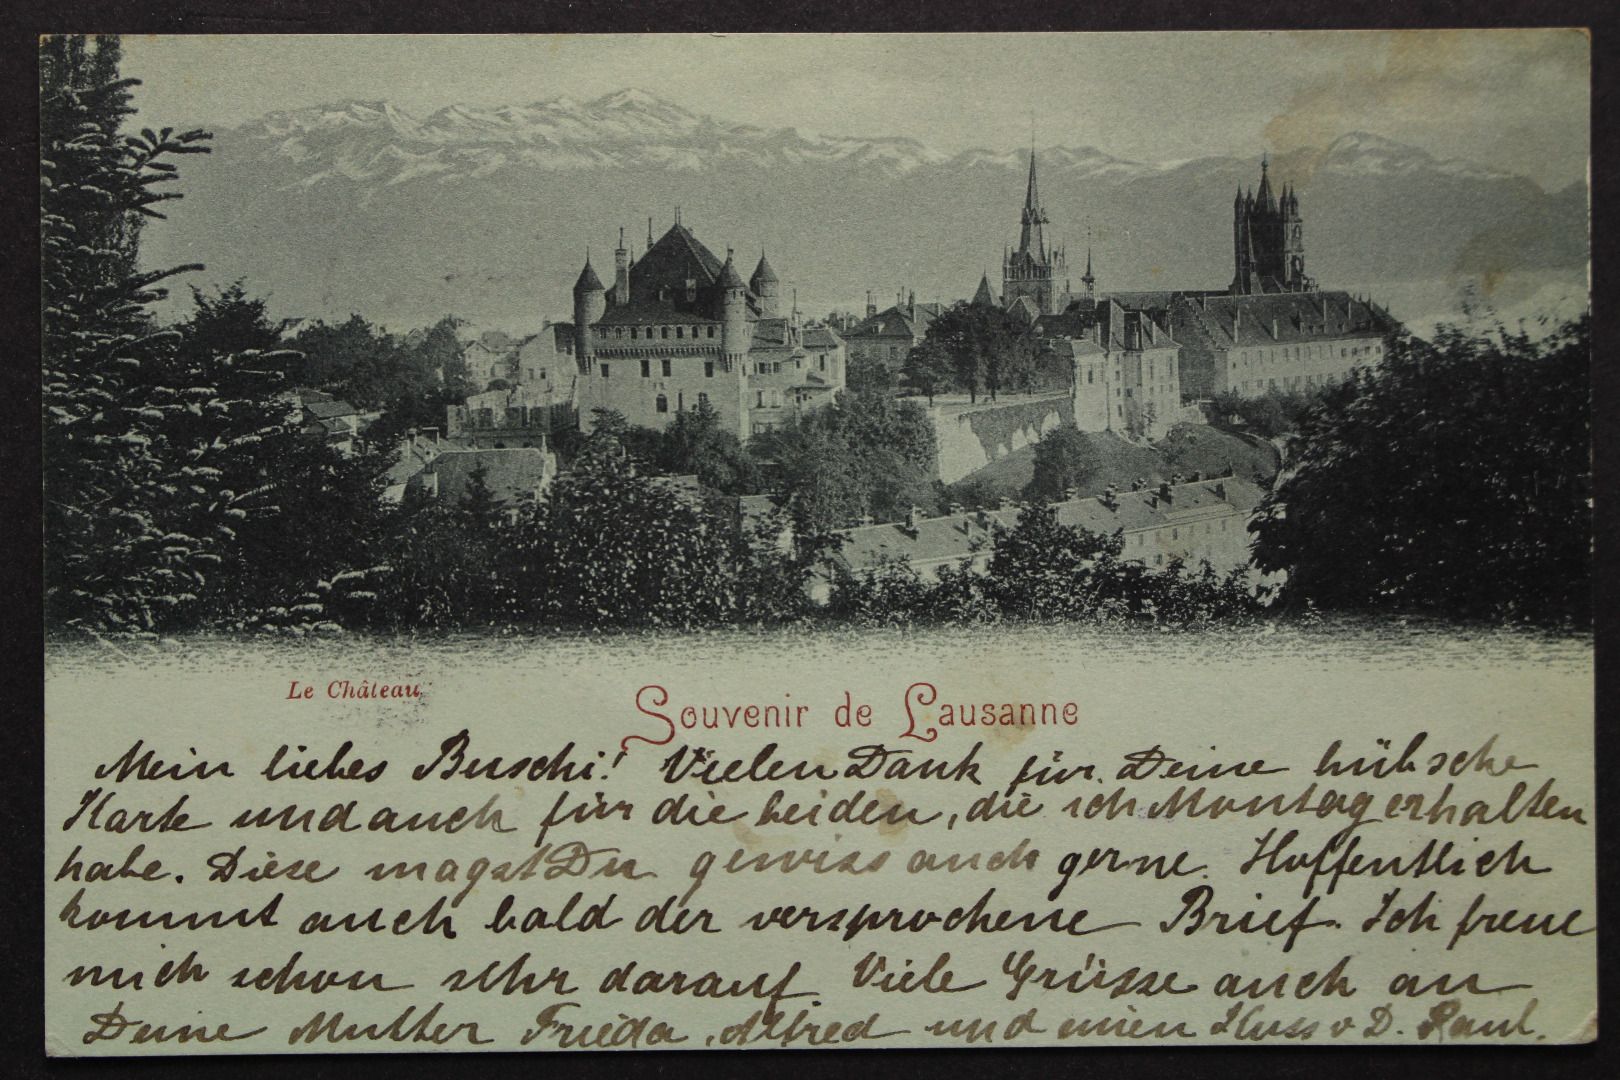 Le Château
Souvenir de Lausanne
Mein liebes Buschi! Vielen Dank für Deine hübsche
Karte und auch für die beiden, die ich Montag erhalten
habe. Diese magst Du gewiss auch gerne. Hoffentlich
kommt auch bald der versprochene Brief. Ich freue
mich schon sehr darauf. Viele Grüsse auch an
Deine Mutter Frieda, Alfred und einen Kuss v D. Paul.